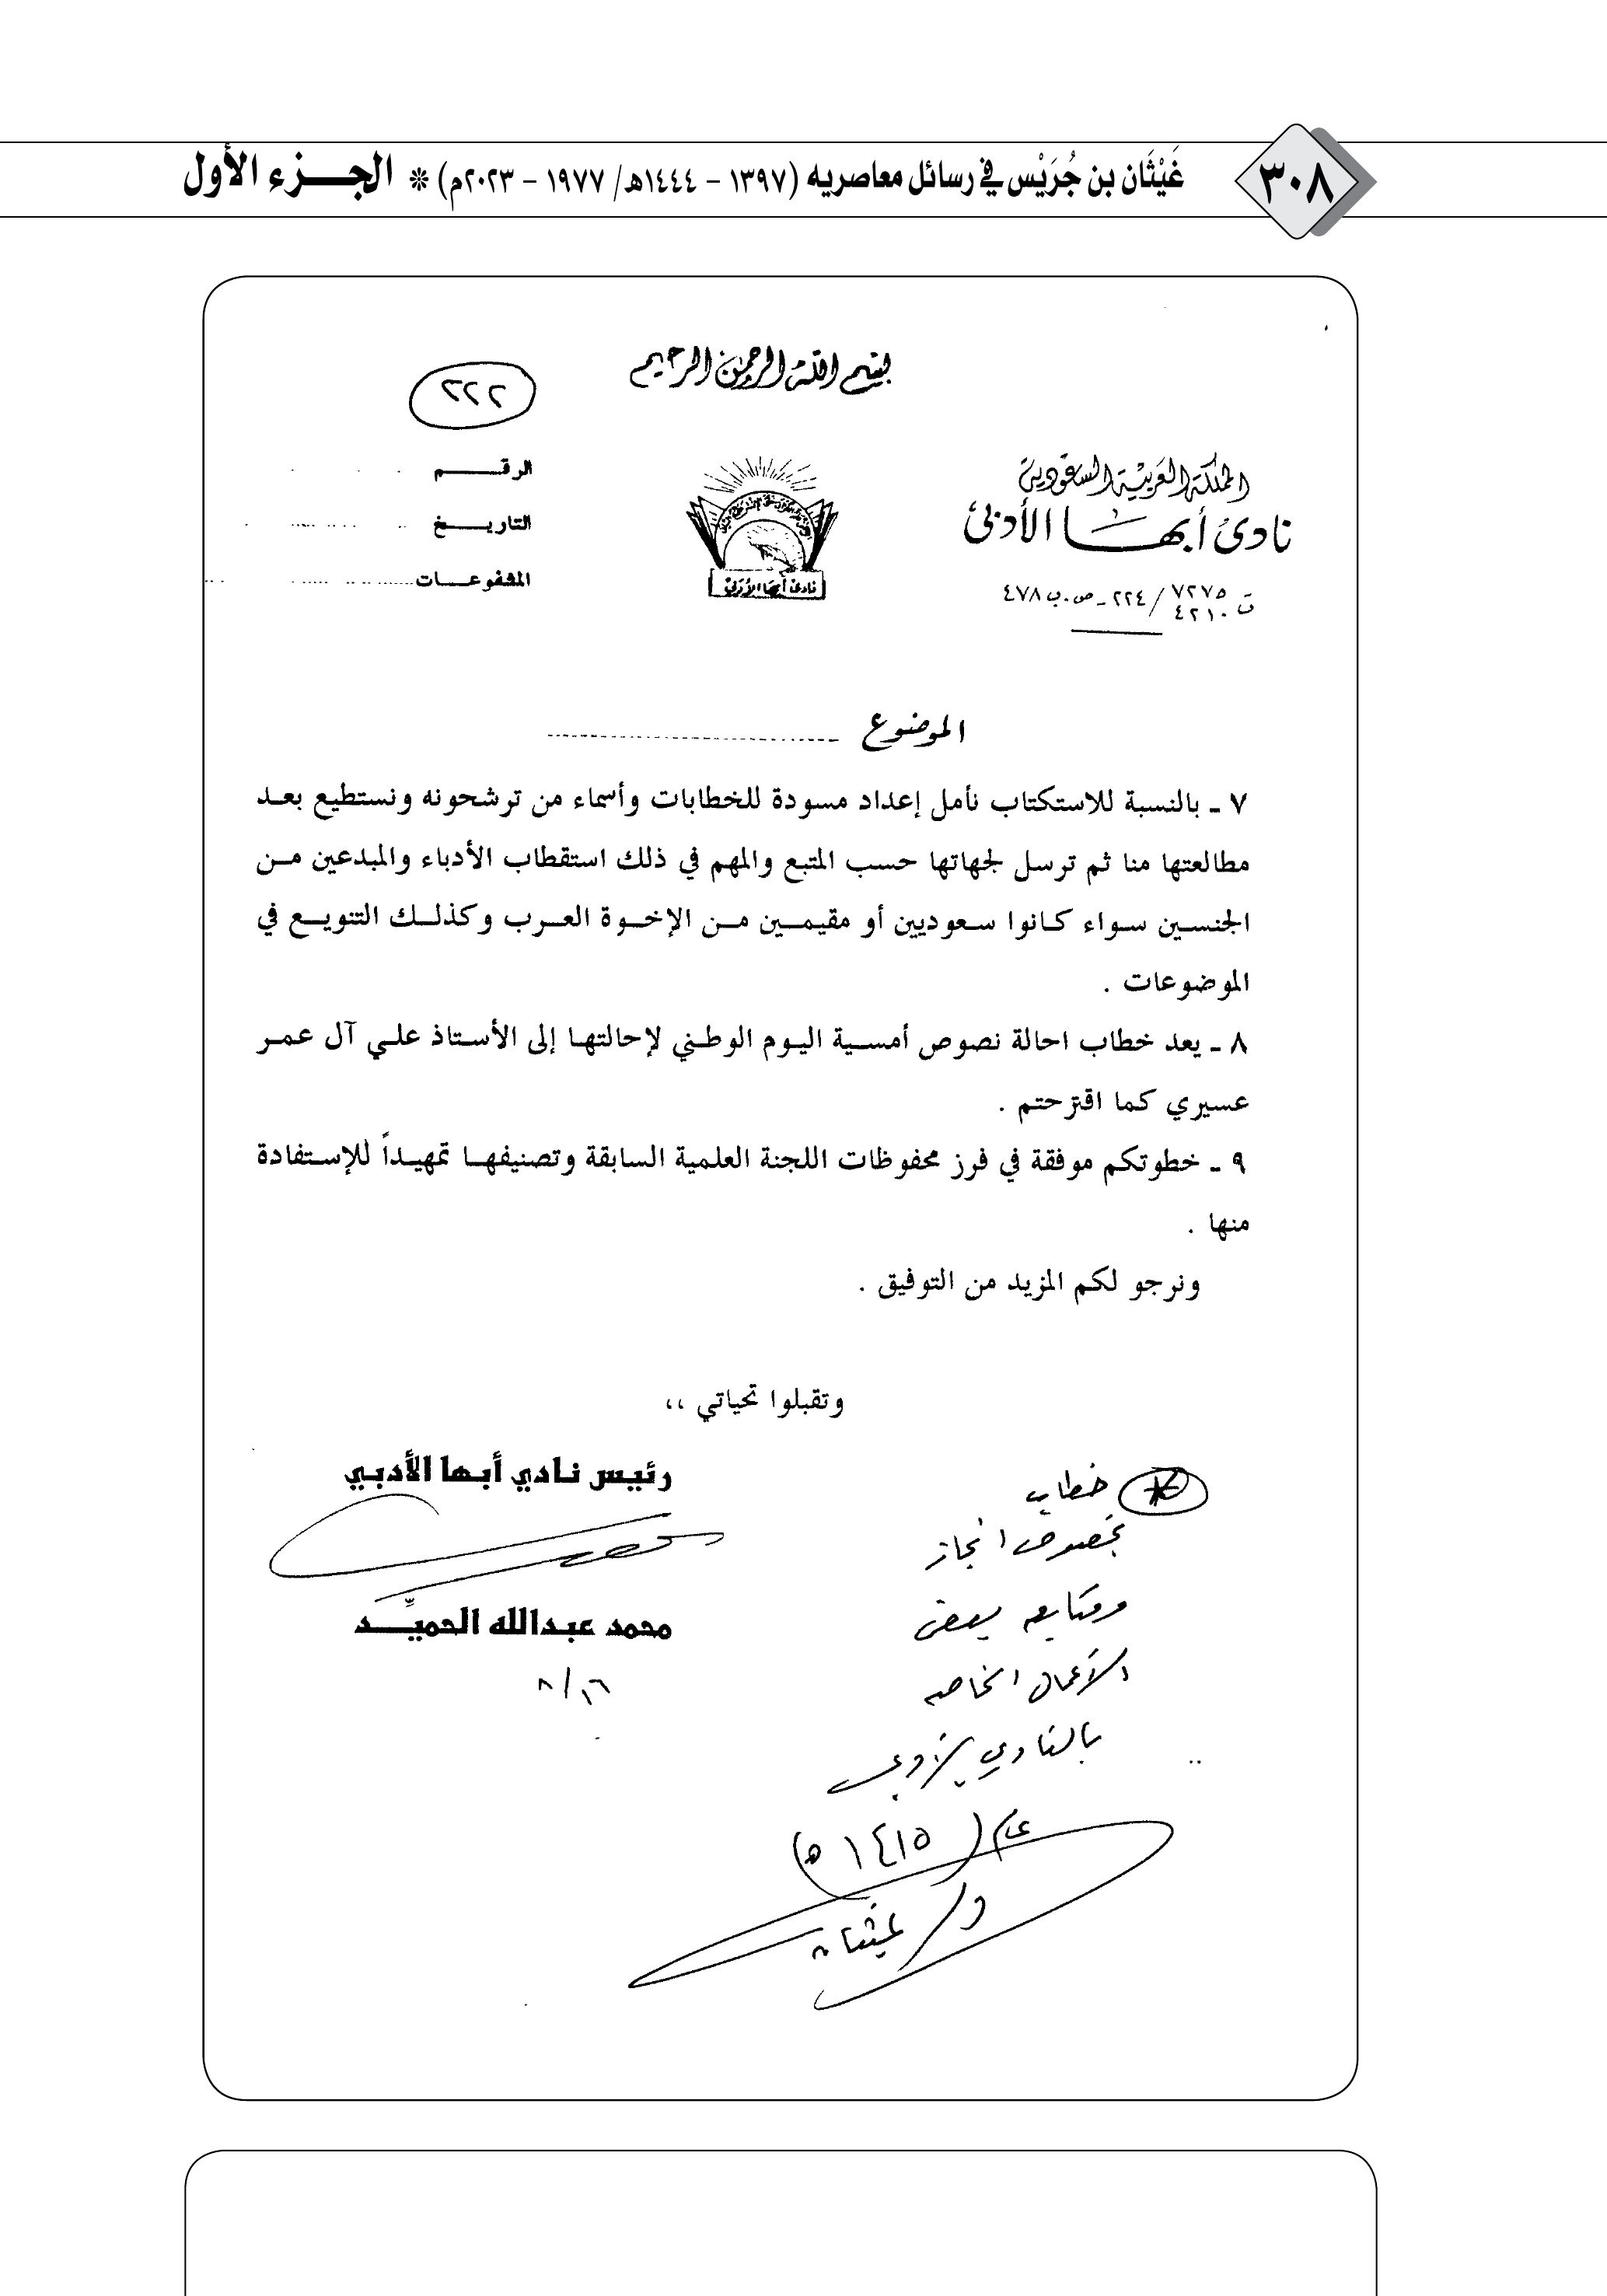 ٣٠٨
غَيْثَان بن جُرَيْس في رسائل معاصريه (١٣٩٧ - ١٤٤٤هـ/ ١٩٧٧ - ٢٠٢٣م) * الجـــزء الأول
بسم الله الرحمن الرحيم
٢٢٢
المملكة العربية السعودية
نادي أبهـــا الأدبي
ت ٧٢٧٥ / ٢٢٤ - ص.ب ٤٧٨
٤٢١٠
نادي أبها الأدبي
الرقــــــم
التاريـــــخ
المشفوعـــات
الموضوع
٧ ـ بالنسبة للاستكتاب نأمل إعداد مسودة للخطابات وأسماء من ترشحونه ونستطيع بعـد
مطالعتها منا ثم ترسل لجهاتها حسب المتبع والمهم في ذلك استقطاب الأدباء والمبدعين مـن
الجنسـين سـواء كـانوا سـعوديين أو مقيمـين مـن الإخـوة العـرب وكذلـك التنويـع في
الموضوعات .
٨ ـ يعد خطاب احالة نصوص أمسـية اليـوم الوطـني لإحالتهـا إلى الأسـتاذ علـي آل عمـر
عسيري كما اقترحتم .
٩ ـ خطوتكم موفقة في فرز محفوظات اللجنة العلمية السابقة وتصنيفهـا تمهيـداً للإسـتفادة
منها .
ونرجو لكم المزيد من التوفيق .
وتقبلوا تحياتي ،،
رئيس نادي أبها الأدبي
محمد عبدالله الحميّـــد
٨/١٦
خطاب
بخصوص انجاز
ومتابعه بعض
الأعمال الخاصه
بالنادي الأدبي
عام (١٤١٥هـ)
د/ غيثان